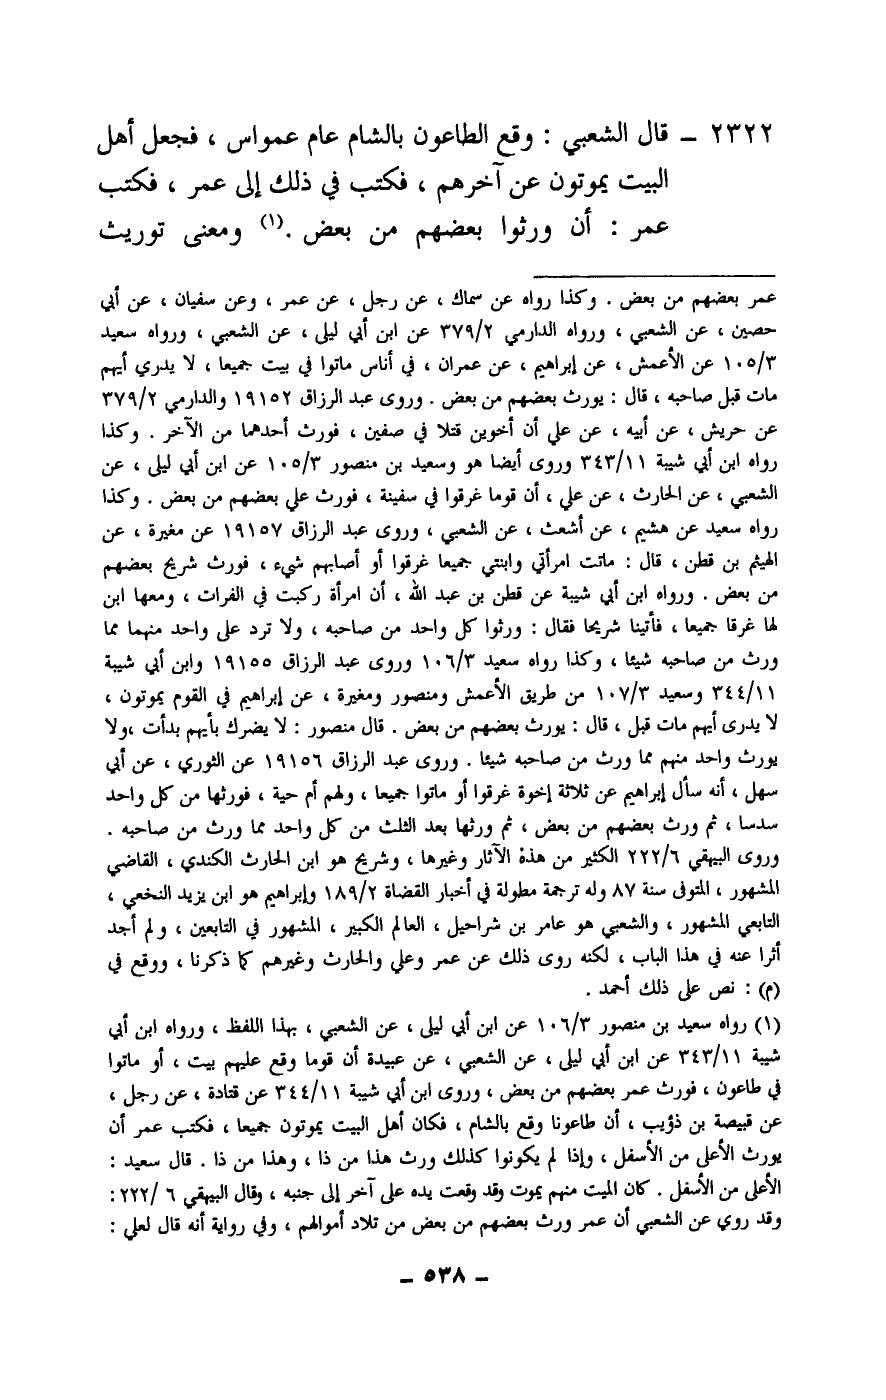 ٢٣٢٢ ـ قال الشعبي : وقع الطاعون بالشام عام عمواس ، فجعل أهل
البيت يموتون عن آخرهم ، فكتب في ذلك إلى عمر ، فكتب
عمر : أن ورثوا بعضهم من بعض .(١) ومعنى توريث
عمر بعضهم من بعض . وكذا رواه عن سماك ، عن رجل ، عن عمر ، وعن سفيان ، عن أبي
حصين ، عن الشعبي ، ورواه الدارمي ٣٧٩/٢ عن ابن أبي ليلى ، عن الشعبي ، ورواه سعيد
١٠٥/٣ عن الأعمش ، عن إبراهيم ، عن عمران ، في أناس ماتوا في بيت جميعا ، لا يدري أيهم
مات قبل صاحبه ، قال : يورث بعضهم من بعض . وروى عبد الرزاق ١٩١٥٢ والدارمي ٣٧٩/٢
عن حريش ، عن أبيه ، عن علي أن أخوين قتلا في صفين ، فورث أحدهما من الآخر . وكذا
رواه ابن أبي شيبة ٣٤٣/١١ وروى أيضا هو وسعيد بن منصور ١٠٥/٣ عن ابن أبي ليلى ، عن
الشعبي ، عن الحارث ، عن علي ، أن قوما غرقوا في سفينة ، فورث علي بعضهم من بعض . وكذا
رواه سعيد عن هشيم ، عن أشعث ، عن الشعبي ، وروى عبد الرزاق ١٩١٥٧ عن مغيرة ، عن
الهيثم بن قطن ، قال : ماتت امرأتي وابنتي جميعا غرقوا أو أصابهم شيء ، فورث شريح بعضهم
من بعض . ورواه ابن أبي شيبة عن قطن بن عبد الله ، أن امرأة ركبت في الفرات ، ومعها ابن
لها غرقا جميعا ، فأتينا شريحا فقال : ورثوا كل واحد من صاحبه ، ولا ترد على واحد منهما مما
ورث من صاحبه شيئا ، وكذا رواه سعيد ١٠٦/٣ وروى عبد الرزاق ١٩١٥٥ وابن أبي شيبة
٣٤٤/١١ وسعيد ١٠٧/٣ من طريق الأعمش ومنصور ومغيرة ، عن إبراهيم في القوم يموتون ،
لا يدرى أيهم مات قبل ، قال : يورث بعضهم من بعض . قال منصور : لا يضرك بأيهم بدأت ،ولا
يورث واحد منهم مما ورث من صاحبه شيئا . وروى عبد الرزاق ١٩١٥٦ عن الثوري ، عن أبي
سهل ، أنه سأل إبراهيم عن ثلاثة إخوة غرقوا أو ماتوا جميعا ، ولهم أم حية ، فورثها من كل واحد
سدسا ، ثم ورث بعضهم من بعض ، ثم ورثها بعد الثلث من كل واحد مما ورث من صاحبه .
وروى البيهقي ٢٢٢/٦ الكثير من هذه الآثار وغيرها ، وشريح هو ابن الحارث الكندي ، القاضي
المشهور ، المتوفى سنة ٨٧ وله ترجمة مطولة في أخبار القضاة ١٨٩/٢ وإبراهيم هو ابن يزيد النخعي ،
التابعي المشهور ، والشعبي هو عامر بن شراحيل ، العالم الكبير ، المشهور في التابعين ، ولم أجد
أثرا عنه في هذا الباب ، لكنه روى ذلك عن عمر وعلي والحارث وغيرهم كما ذكرنا ، ووقع في
(م) : نص على ذلك أحمد .
(١) رواه سعيد بن منصور ١٠٦/٣ عن ابن أبي ليلى ، عن الشعبي ، بهذا اللفظ ، ورواه ابن أبي
شيبة ٣٤٣/١١ عن ابن أبي ليلى ، عن الشعبي ، عن عبيدة أن قوما وقع عليهم بيت ، أو ماتوا
في طاعون ، فورث عمر بعضهم من بعض ، وروى ابن أبي شيبة ٣٤٤/١١ عن قتادة ، عن رجل ،
عن قبيصة بن ذؤيب ، أن طاعونا وقع بالشام ، فكان أهل البيت يموتون جميعا ، فكتب عمر أن
يورث الأعلى من الأسفل ، وإذا لم يكونوا كذلك ورث هذا من ذا ، وهذا من ذا . قال سعيد :
الأعلى من الأسفل . كان الميت منهم يموت وقد وقعت يده على آخر إلى جنبه ، وقال البيهقي ٦ /٢٢٢ :
وقد روي عن الشعبي أن عمر ورث بعضهم من بعض من تلاد أموالهم ، وفي رواية أنه قال لعلي :
ـ ٥٣٨ ـ